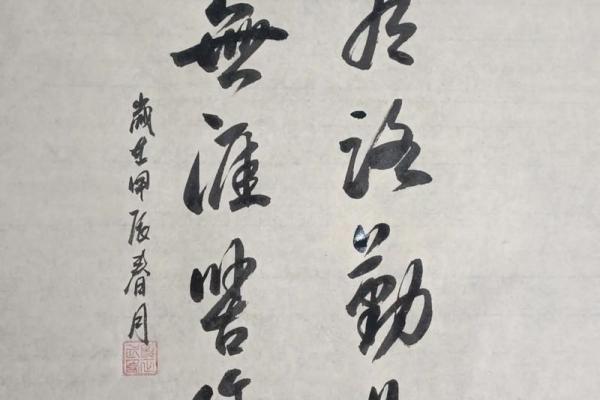 有路勤
無涯
歲在甲辰春月